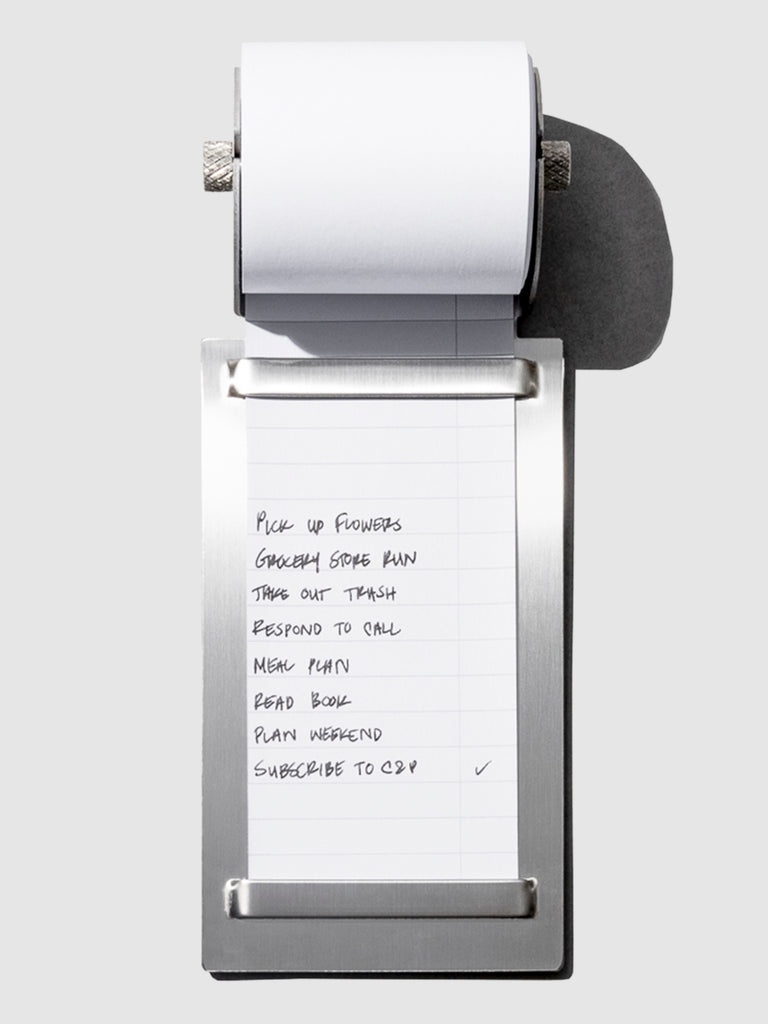 PICK UP FLOWERS
GROCERY STORE RUN
TAKE OUT TRASH
RESPOND TO CALL
MEAL PLAN
READ BOOK
PLAN WEEKEND
SUBSCRIBE TO C2P ✓